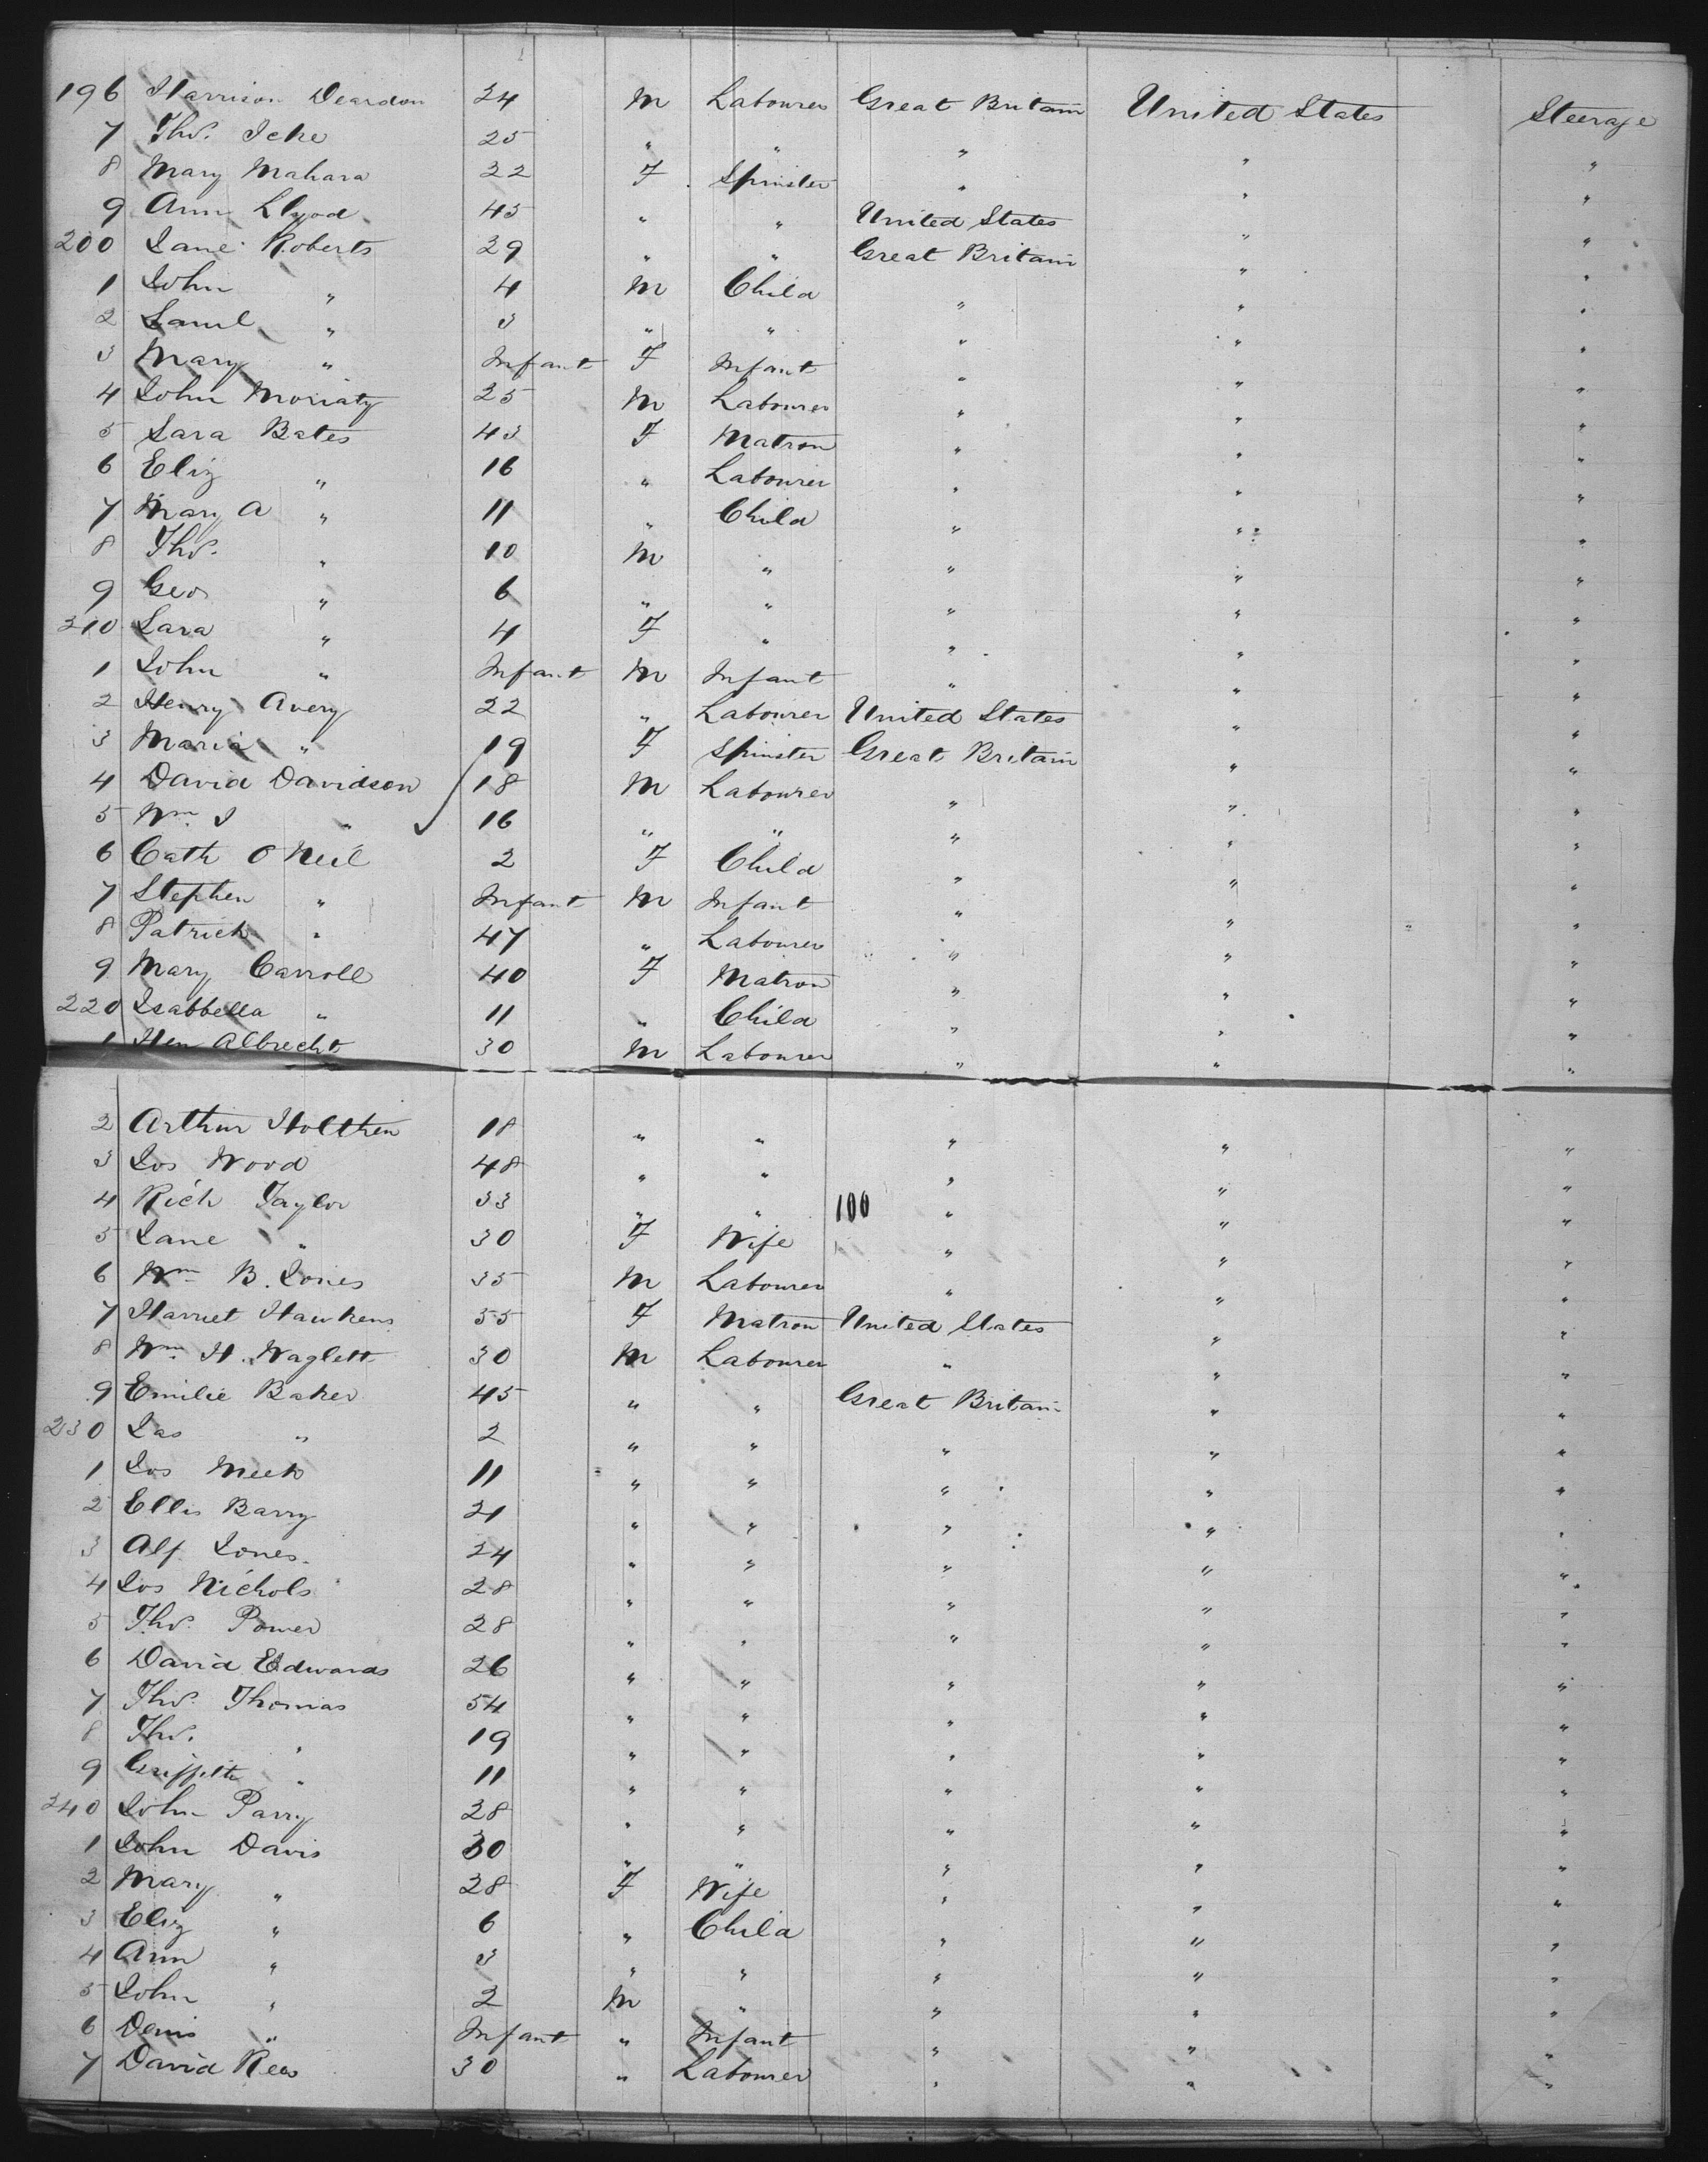 196 Harrison Deardon 24 M Labourer Great Britain United States Steerage
7 Thos. Iche 25 " " " " "
8 Mary Mahara 22 F Spinster " " "
9 Ann Llyod 45 " " United States " "
200 Jane Roberts 29 " " Great Britain " "
1 John " 4 M Child " " "
2 Saml " 3 " " " " "
3 Mary " Infant F Infant " " "
4 John Moriaty 25 M Labourer " " "
5 Sara Bates 43 F Matron " " "
6 Eliz " 16 " Labourer " " "
7 Mary A " 11 " Child " " "
8 Thos. " 10 M " " " "
9 Geo " 6 " " " " "
210 Sara " 4 F " " " "
1 John " Infant M Infant " " "
2 Henry Avery 22 " Labourer United States " "
3 Maria " 19 F Spinster Great Britain " "
4 David Davidson 18 M Labourer " " "
5 Wm J " 16 " " " " "
6 Cath O Neil 2 F Child " " "
7 Stephen " Infant M Infant " " "
8 Patrick " 47 " Labourer " " "
9 Mary Carroll 40 F Matron " " "
220 Isabbella " 11 " Child " " "
1 Hen Albrecht 30 M Labourer " " "
2 Arthur Holthen 18 " " " " "
3 Jos Wood 48 " " " " "
4 Rich Taylor 33 " " 100 " " "
5 Jane " 30 F Wife " " "
6 Wm B. Jones 35 M Labourer " " "
7 Harriet Hawkens 55 F Matron United States " "
8 Wm H. Waglett 30 M Labourer " " "
9 Emilie Baker 45 " " Great Britain " "
230 Jas " 2 " " " " "
1 Jos Meek 11 " " " " "
2 Ellis Barry 21 " " " " "
3 Alf Jones 24 " " " " "
4 Jos Nichols 28 " " " " "
5 Thos. Power 28 " " " " "
6 David Edwards 26 " " " " "
7 Thos. Thomas 54 " " " " "
8 Thos. " 19 " " " " "
9 Griffith " 11 " " " " "
240 John Parry 28 " " " " "
1 John Davis 30 " " " " "
2 Mary " 28 F Wife " " "
3 Eliz " 6 " Child " " "
4 Ann " 3 " " " " "
5 John " 2 M " " " "
6 Denis " Infant " Infant " " "
7 David Rees 30 " Labourer " " "